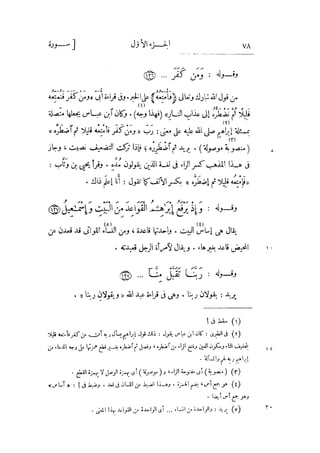 ٧٨ الجزء الأوّل [ ســـورة
وقــوله : وَمَن كَفَرَ ... ﴿١٢٦﴾
من قول الله تبارك وتعالى ﴿فَأُمَتِّعُهُ﴾ على الخبر. وفى قراءة أُبَىّ «ومن كفر فنمتعه
قليلا ثم نضطره إلى عذاب النار» (فهذا وجه) . وكان ابن عباس يجعلها متصلة
بمسئلة إبراهيم صلى الله عليه على معنى : رَبِّ «ومن كفر فأمتعه قليلا ثم اضطره»
(منصوبة موصولة) . يريد ثم اضطرره ؛ فإذا تركت التضعيف نصبت ، وجاز
فى هــذا المذهب كسر الراء فى لغــة الذين يقولون مُدِّه . وقرأ يحيى بن وثَّاب :
«فأمتعه قليلا ثم إضطره» بكسر الألف كما تقول : أنا إعلم ذاك .
وقــوله : وَإِذْ يَرْفَعُ إِبْرَاهِـيمُ الْقَوَاعِدَ مِنَ الْبَيْتِ وَإِسْمَاعِيلُ ﴿١٢٧﴾
يقال هى إساس البيت . واحدتها قاعدة ، ومن النساء اللواتى قد قعدن عن
المحيض قاعد بغيرهاء . ويقال لامرأة الرجل قعيدته .
وقــوله : رَبَّنَا تَقَبَّلْ مِنَّـا ... ﴿١٢٧﴾
يريد : يقولان ربنا . وهى فى قراءة عبد الله «ويقولان ربنا» .
(١) سقط فى أ
(٢) فى الطبرى : كان ابن عباس يقول : ذلك قول إبراهيم يسأل ربه أن من كفر فأمتعه قليلا
بتخفيف التاء وسكون العين وفتح الراء من اضطره ، وفصل ثم اضطره بغير قطع همزتها على وجه الدعاء من
إبراهيم ربه لهم والمسألة .
(٣) (منصوبة) أى مفتوحة الراء ، و (موصولة) أى بهمزة الوصل لا بهمزة القطع .
(٤) هو جمع أس ، بضم الهمزة . وهــذا الضبط عن اللسان فى قعد . وضبط فى أ : «أساس»
وهو جمع أس أيضا .
(٥) يريد : والواحدة من النساء ... أى الواحدة من القواعد بهذا المعنى .
٥
١٠
١٥
٢٠